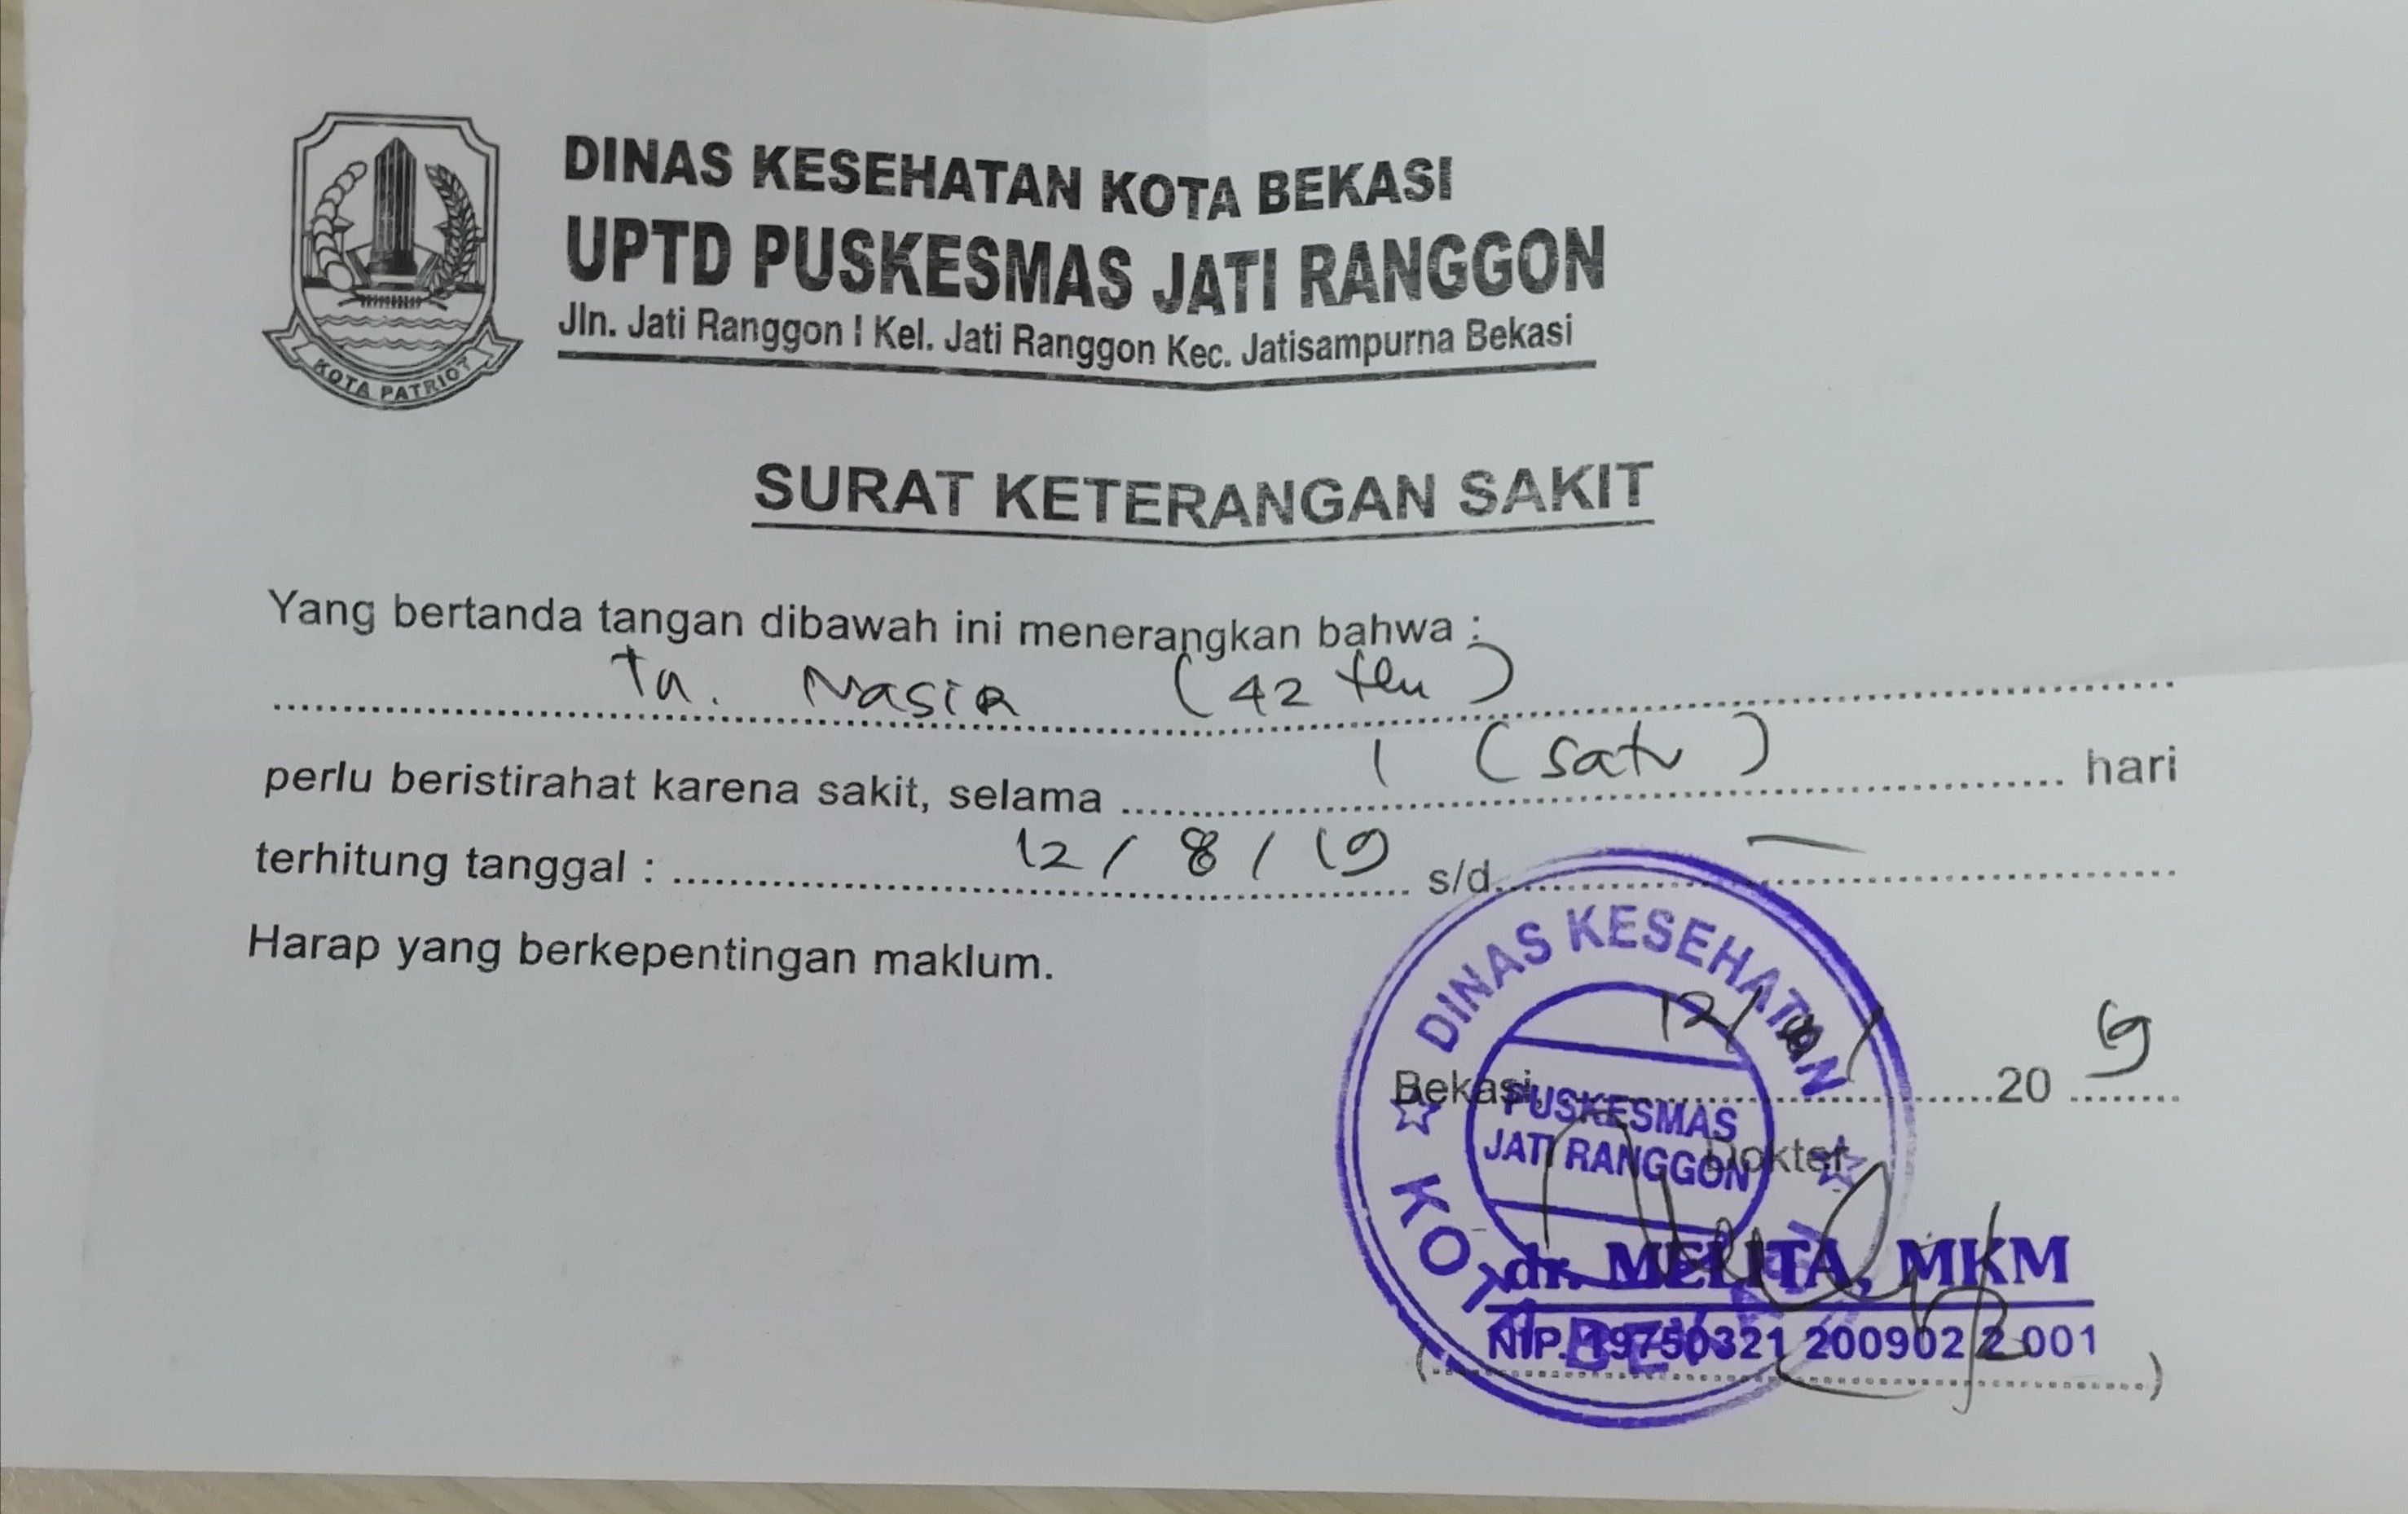 DINAS KESEHATAN KOTA BEKASI
UPTD PUSKESMAS JATI RANGGON
Jln. Jati Ranggon I Kel. Jati Ranggon Kec. Jatisampurna Bekasi
KOTA PATRIOT
SURAT KETERANGAN SAKIT
Yang bertanda tangan dibawah ini menerangkan bahwa :
Tn. Nasir (42 thn)
perlu beristirahat karena sakit, selama 1 (satu) hari
terhitung tanggal : 12/8/19 s/d. —
Harap yang berkepentingan maklum.
DINAS KESEHATAN
Bekasi, 12/8/ 2019
PUSKESMAS
JATI RANGGON
Dokter
dr. MELITA, MKM
KOTA BEKASI
NIP. 19750321 200902 2 001